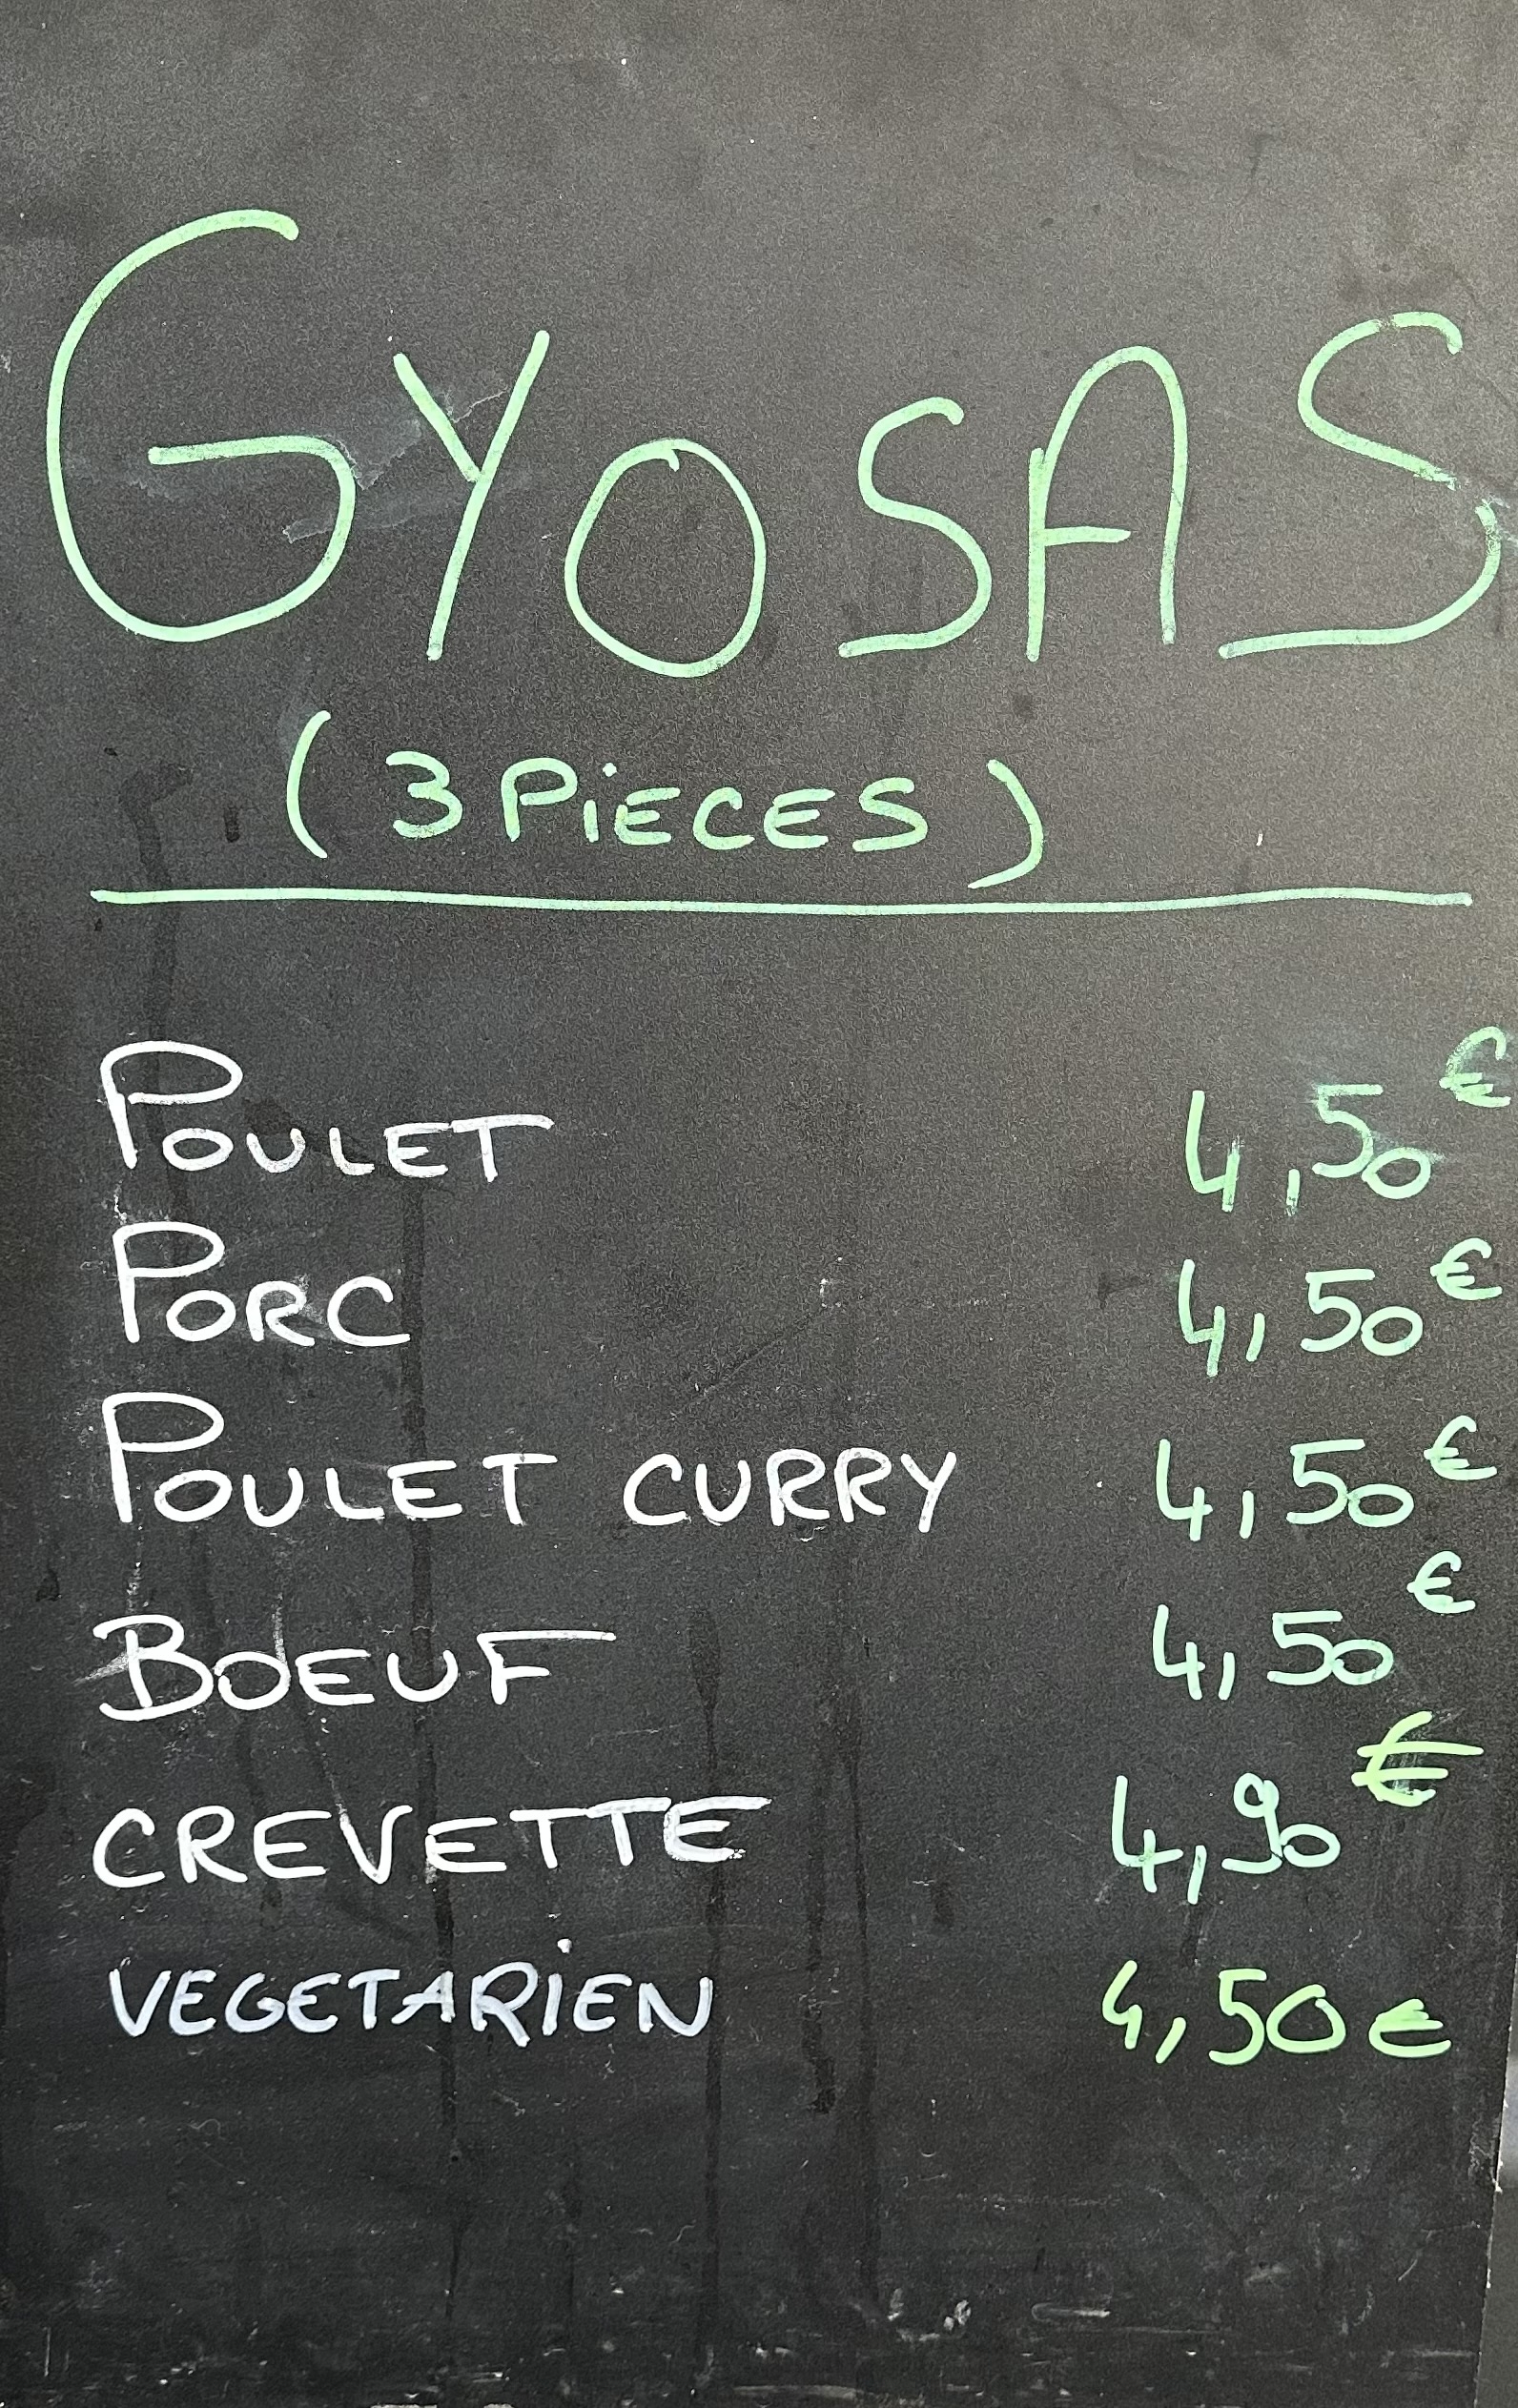 GYOSAS
(3 PiECES)
POULET 4,50€
PORC 4,50€
POULET CURRY 4,50€
BOEUF 4,50€
CREVETTE 4,90€
VEGETARiEN 4,50€